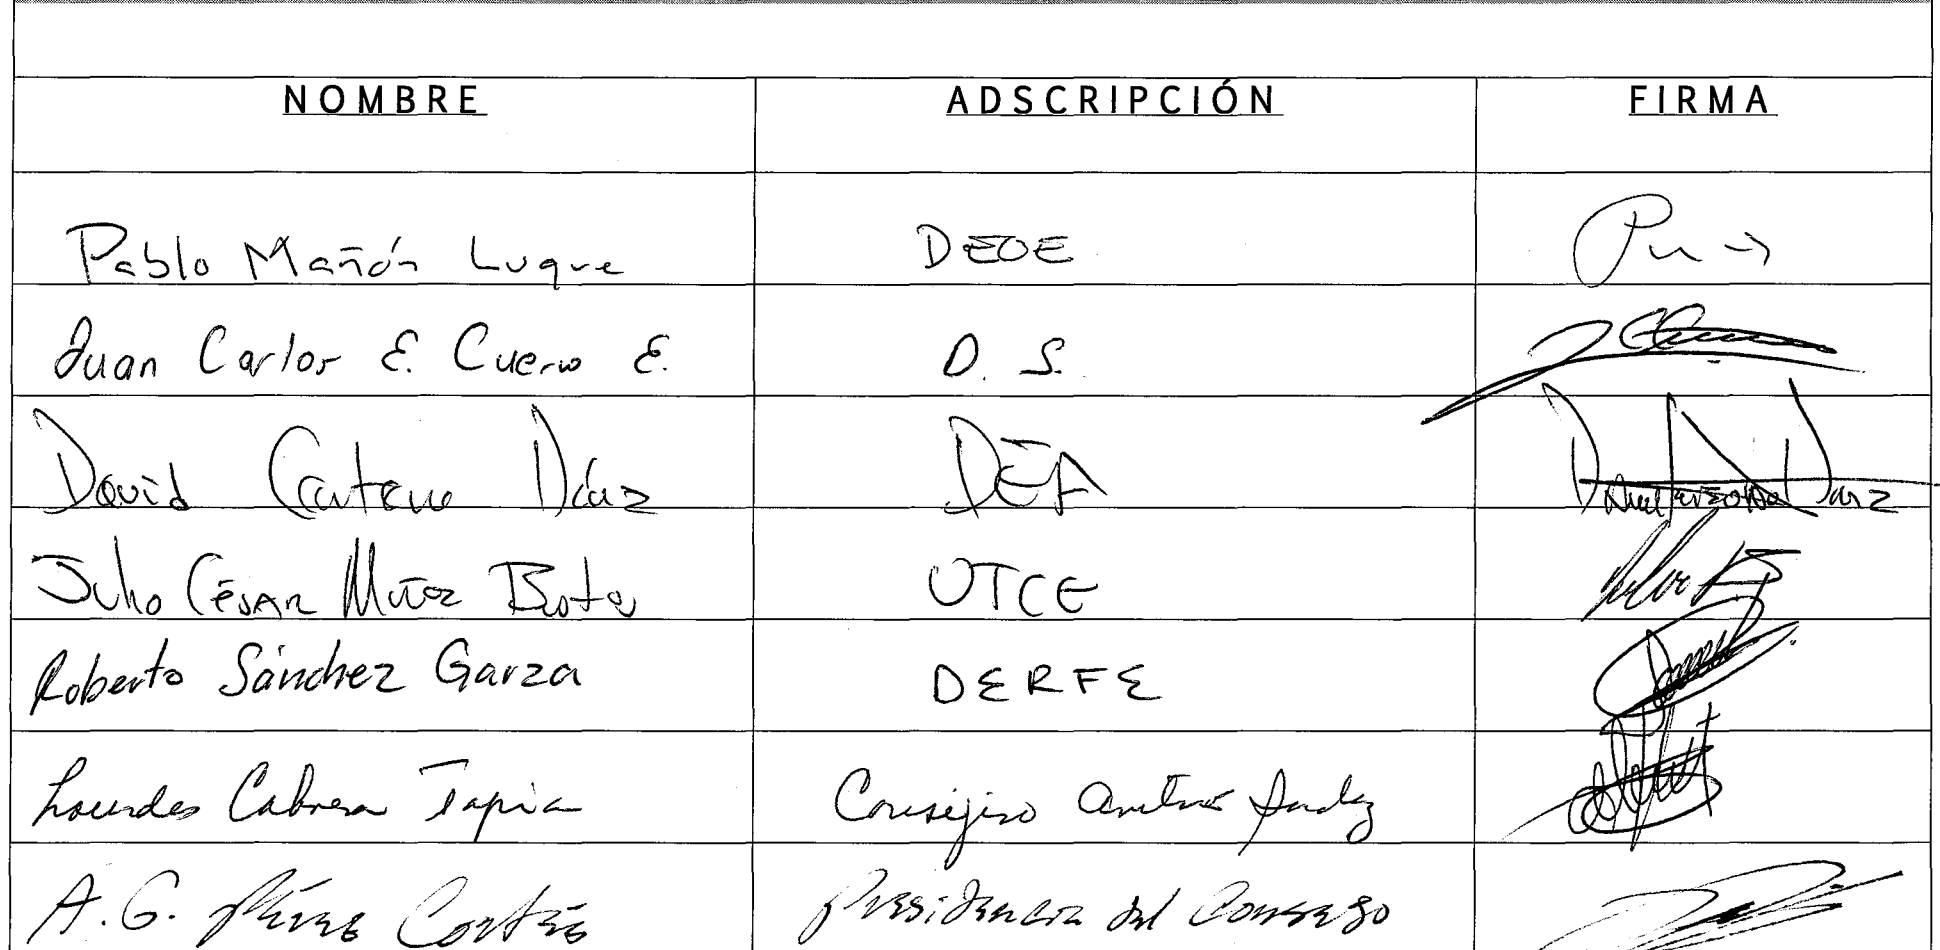 NOMBRE ADSCRIPCIÓN FIRMA
Pablo Mañón Luque DEOE
Juan Carlos E. Cuervo E. D. S.
David Díaz DEA
Julio César Muñoz DEOE UTCE
Roberto Sánchez Garza DERFE
Lourdes Cabrera Tapia Consejero
A. G. Pérez Cortés Presidencia del Consejo